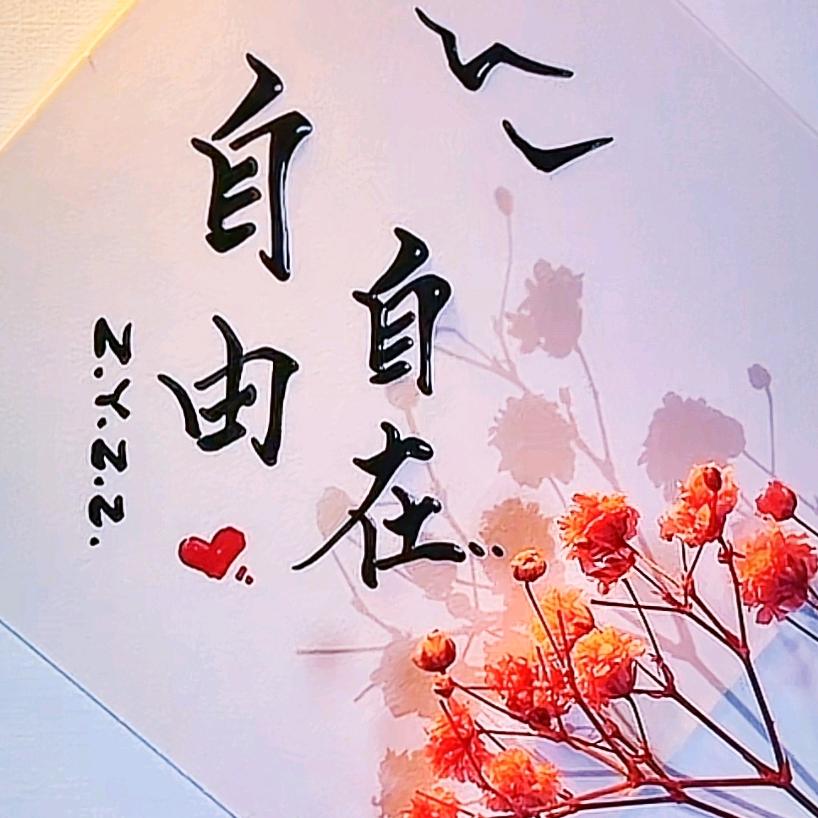 自由
自在..
Z.Y.Z.Z.